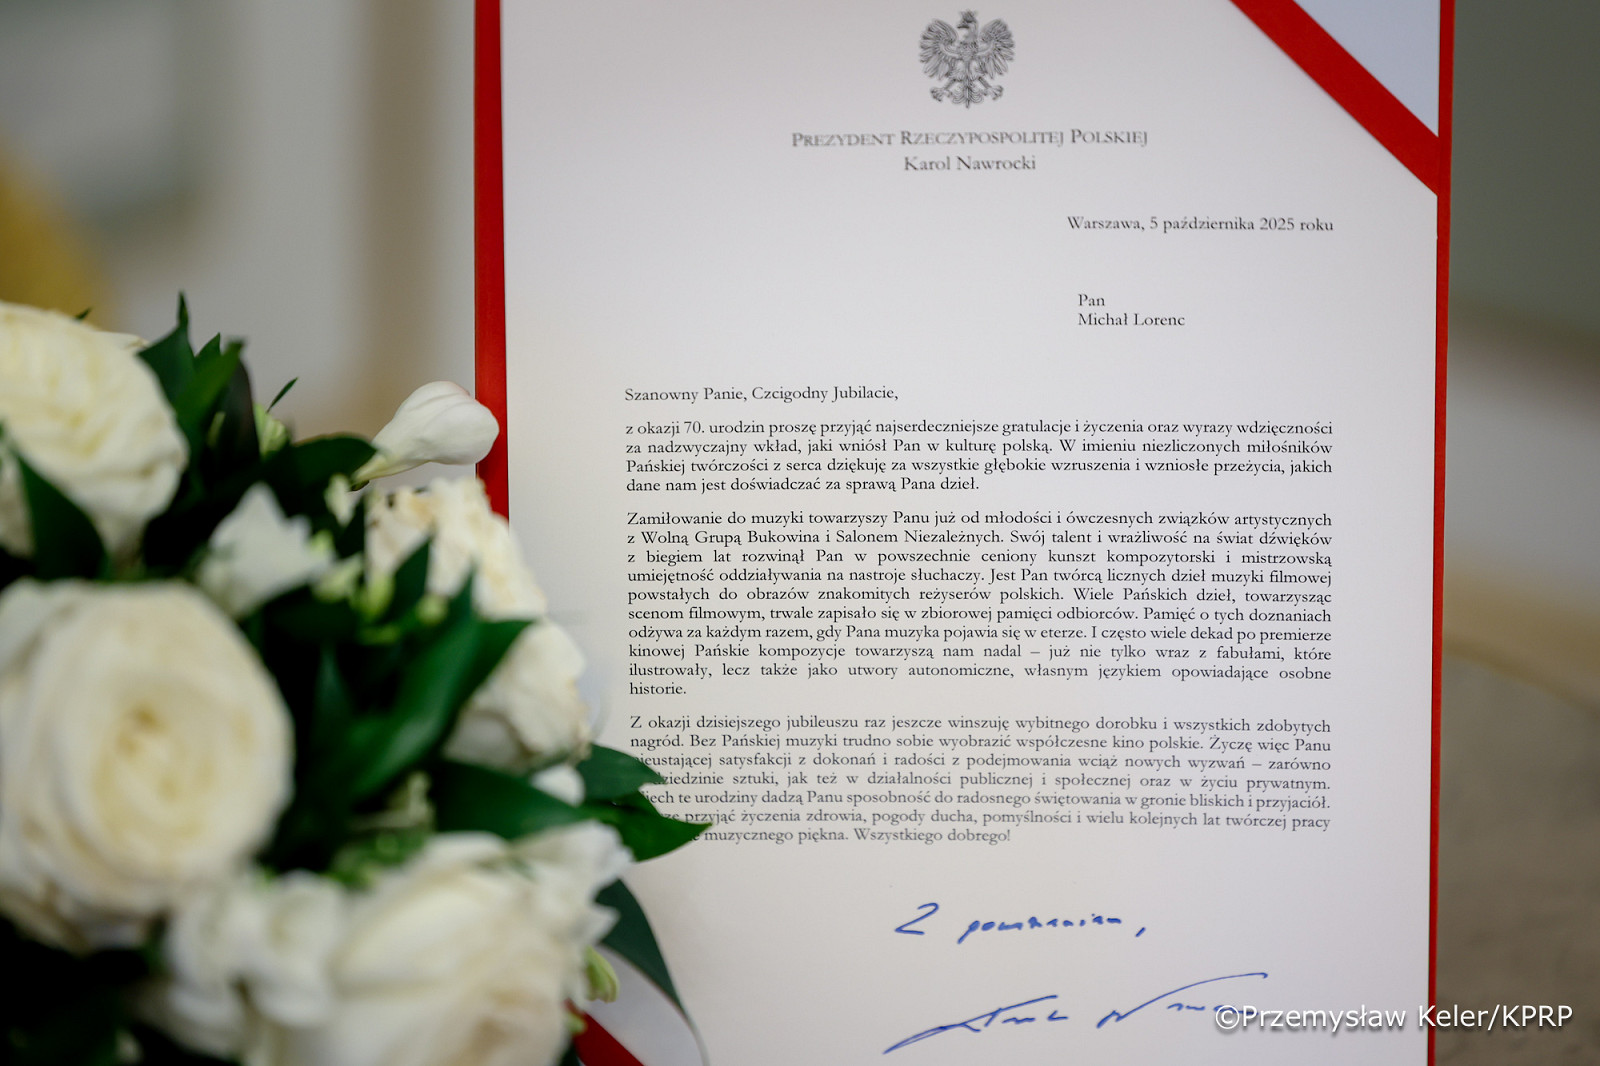 PREZYDENT RZECZYPOSPOLITEJ POLSKIEJ
Karol Nawrocki
Warszawa, 5 października 2025 roku
Pan
Michał Lorenc
Szanowny Panie, Czcigodny Jubilacie,
z okazji 70. urodzin proszę przyjąć najserdeczniejsze gratulacje i życzenia oraz wyrazy wdzięczności
za nadzwyczajny wkład, jaki wniósł Pan w kulturę polską. W imieniu niezliczonych miłośników
Pańskiej twórczości z serca dziękuję za wszystkie głębokie wzruszenia i wzniosłe przeżycia, jakich
dane nam jest doświadczać za sprawą Pana dzieł.
Zamiłowanie do muzyki towarzyszy Panu już od młodości i ówczesnych związków artystycznych
z Wolną Grupą Bukowina i Salonem Niezależnych. Swój talent i wrażliwość na świat dźwięków
z biegiem lat rozwinął Pan w powszechnie ceniony kunszt kompozytorski i mistrzowską
umiejętność oddziaływania na nastroje słuchaczy. Jest Pan twórcą licznych dzieł muzyki filmowej
powstałych do obrazów znakomitych reżyserów polskich. Wiele Pańskich dzieł, towarzysząc
scenom filmowym, trwale zapisało się w zbiorowej pamięci odbiorców. Pamięć o tych doznaniach
odżywa za każdym razem, gdy Pana muzyka pojawia się w eterze. I często wiele dekad po premierze
kinowej Pańskie kompozycje towarzyszą nam nadal – już nie tylko wraz z fabułami, które
ilustrowały, lecz także jako utwory autonomiczne, własnym językiem opowiadające osobne
historie.
Z okazji dzisiejszego jubileuszu raz jeszcze winszuję wybitnego dorobku i wszystkich zdobytych
nagród. Bez Pańskiej muzyki trudno sobie wyobrazić współczesne kino polskie. Życzę więc Panu
nieustającej satysfakcji z dokonań i radości z podejmowania wciąż nowych wyzwań – zarówno
dziedzinie sztuki, jak też w działalności publicznej i społecznej oraz w życiu prywatnym.
Niech te urodziny dadzą Panu sposobność do radosnego świętowania w gronie bliskich i przyjaciół.
przyjąć życzenia zdrowia, pogody ducha, pomyślności i wielu kolejnych lat twórczej pracy
muzycznego piękna. Wszystkiego dobrego!
Z poważaniem,
©Przemysław Keler/KPRP